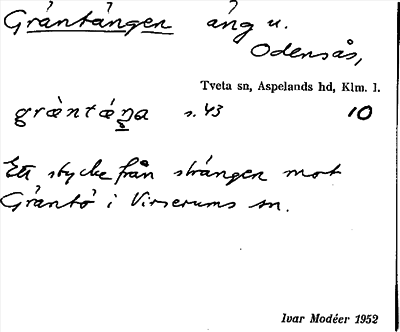 Gräntängen äng u.
Odensås,
Tveta sn, Aspelands hd, Klm. l.
gràntáŋa s. 43 10
Ett stycke från strängen mot
Gräntö i Virserums sn.
Ivar Modéer 1952